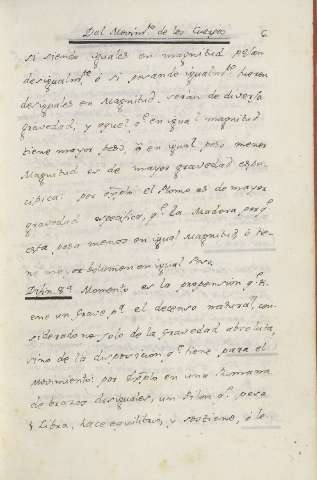 Del Movim.to de los Cuerpos 6
si siendo iguales en magnitud pesan
desigualm.te ó si pesando igualm.te fueren
desiguales en Magnitud, serán de diversa
gravedad, y aquel q.e en igual magnitud
tiene mayor peso, ó en igual peso menor
Magnitud es de mayor gravedad espe-
cifica: por exemplo el Plomo es de mayor
gravedad especifica, q.e la Madera, porq.e
esta, pesa menos en igual Magnitud, ó tie-
ne mayor bolumen en igual Peso.
Difin. 8.a Momento es la propension q.e ti-
ene un grave, p.a el decenso natural, con-
siderado no solo de la gravedad absoluta,
sino de la disposicion, q.e tiene para el
movimiento: por exemplo en una Romana
de brazos desiguales, un Pilon q.e pesa
1 Libra, hace equilibrio, y sostiene, ó le